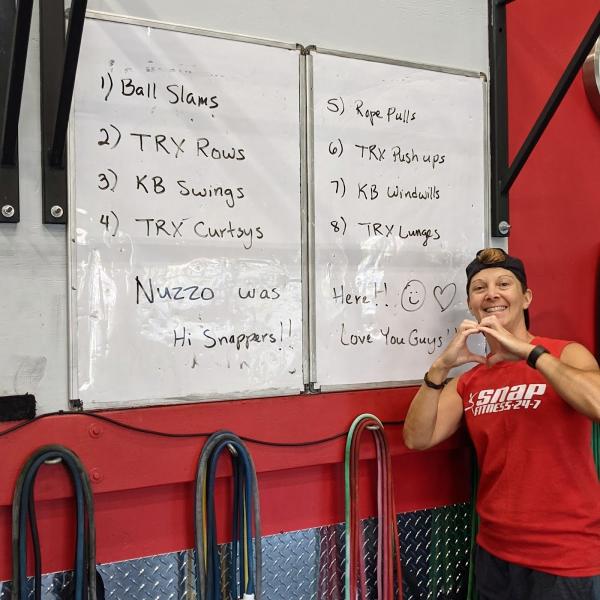 1) Ball Slams
2) TRX Rows
3) KB Swings
4) TRX Curtsys
Nuzzo was
Hi Snappers!!
5) Rope Pulls
6) TRX Push ups
7) KB Windwills
8) TRX Lunges
Here!!
Love You Guys!!
SNAP
FITNESS-24-7